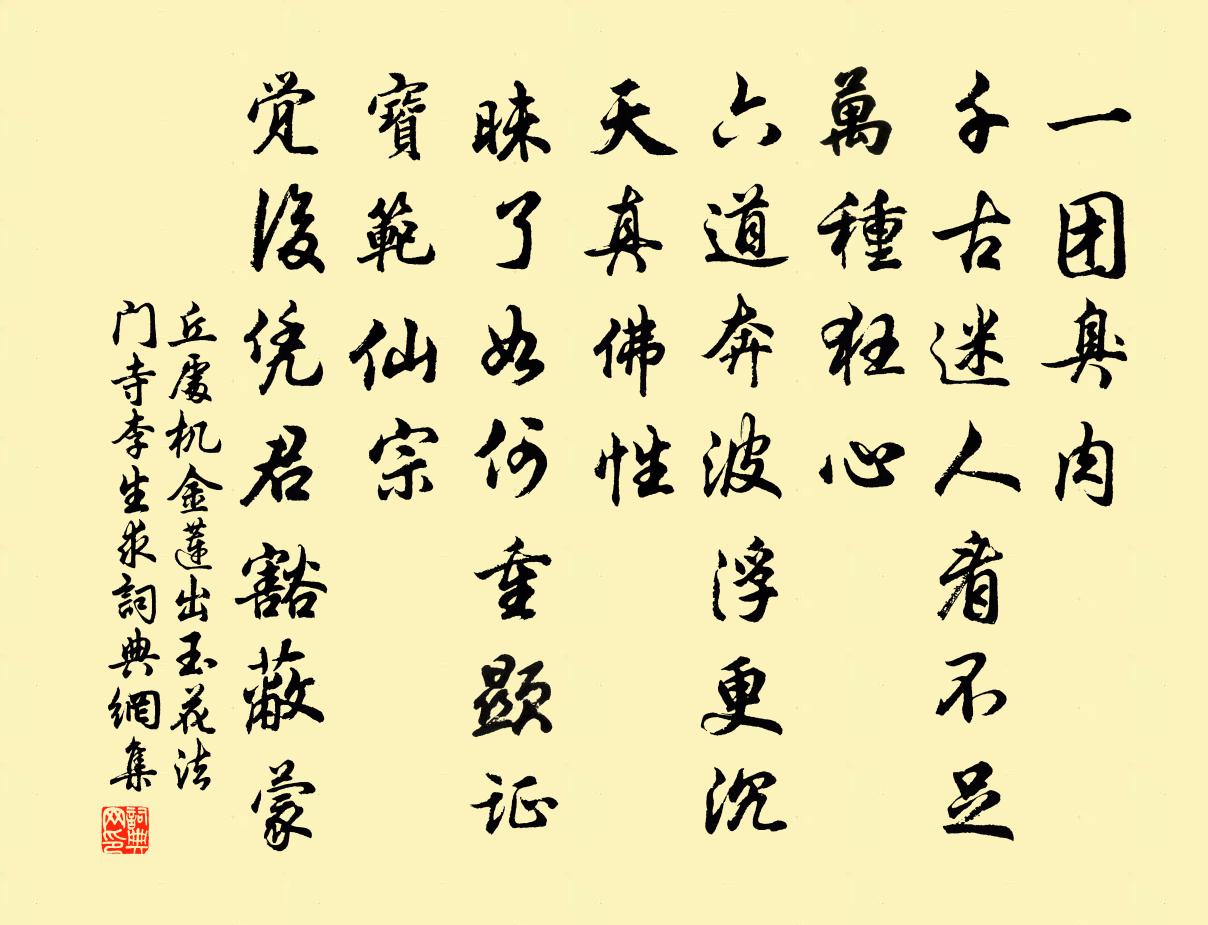 一团臭肉
千古迷人看不足
萬種狂心
六道奔波浮更沉
天真佛性
昧了如何重顕证
寶範仙宗
觉後凭君豁蔽蒙
丘處机金蓮出玉花法
门寺李生求詞典網集
詞典网印